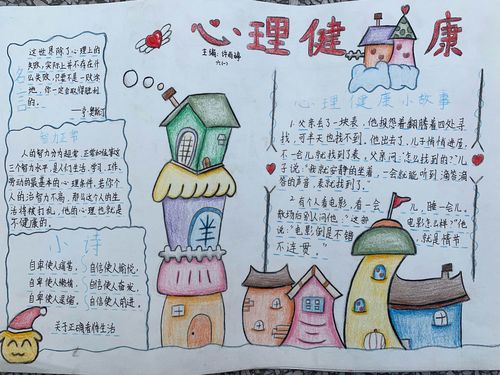 心理健康
主编:许雨涵
六(1)
名言
这世界除了心理上的
失败,实际上并不存在什
么失败,只要不是一败涂
地,你一定会取得胜利
的。
智力正常
人的智力分为超常、正常和低常这
三个智力水平,是人们生活、学习、工作、
劳动的最基本的心理条件,若你个
人的治智力不高,那么这个人的生
活将被打乱,他的心理也就是
不健康的。
小诗
自卑使人痛苦,自信使人愉悦,
自卑使人懒惰,自信使人奋发,
自卑使人退缩,自信使人前进。
关于正确看待生活
心理健康小故事
1.父亲丢了一块表,他抱怨着翻腾着四处寻
找,可半天也找不到,他出去了,儿子悄悄进屋,
不一会儿就找到了表,父亲问:怎么找到的?”儿
子说:“我就安静的坐着,一会就能听到滴答滴
答的声音,表就找到了。”
2.有个人看电影,看一会儿,睡一会儿,
散场后别人问他:“这部电影怎么样?”他
说:“电影倒是不错,就是情节
不连贯。”